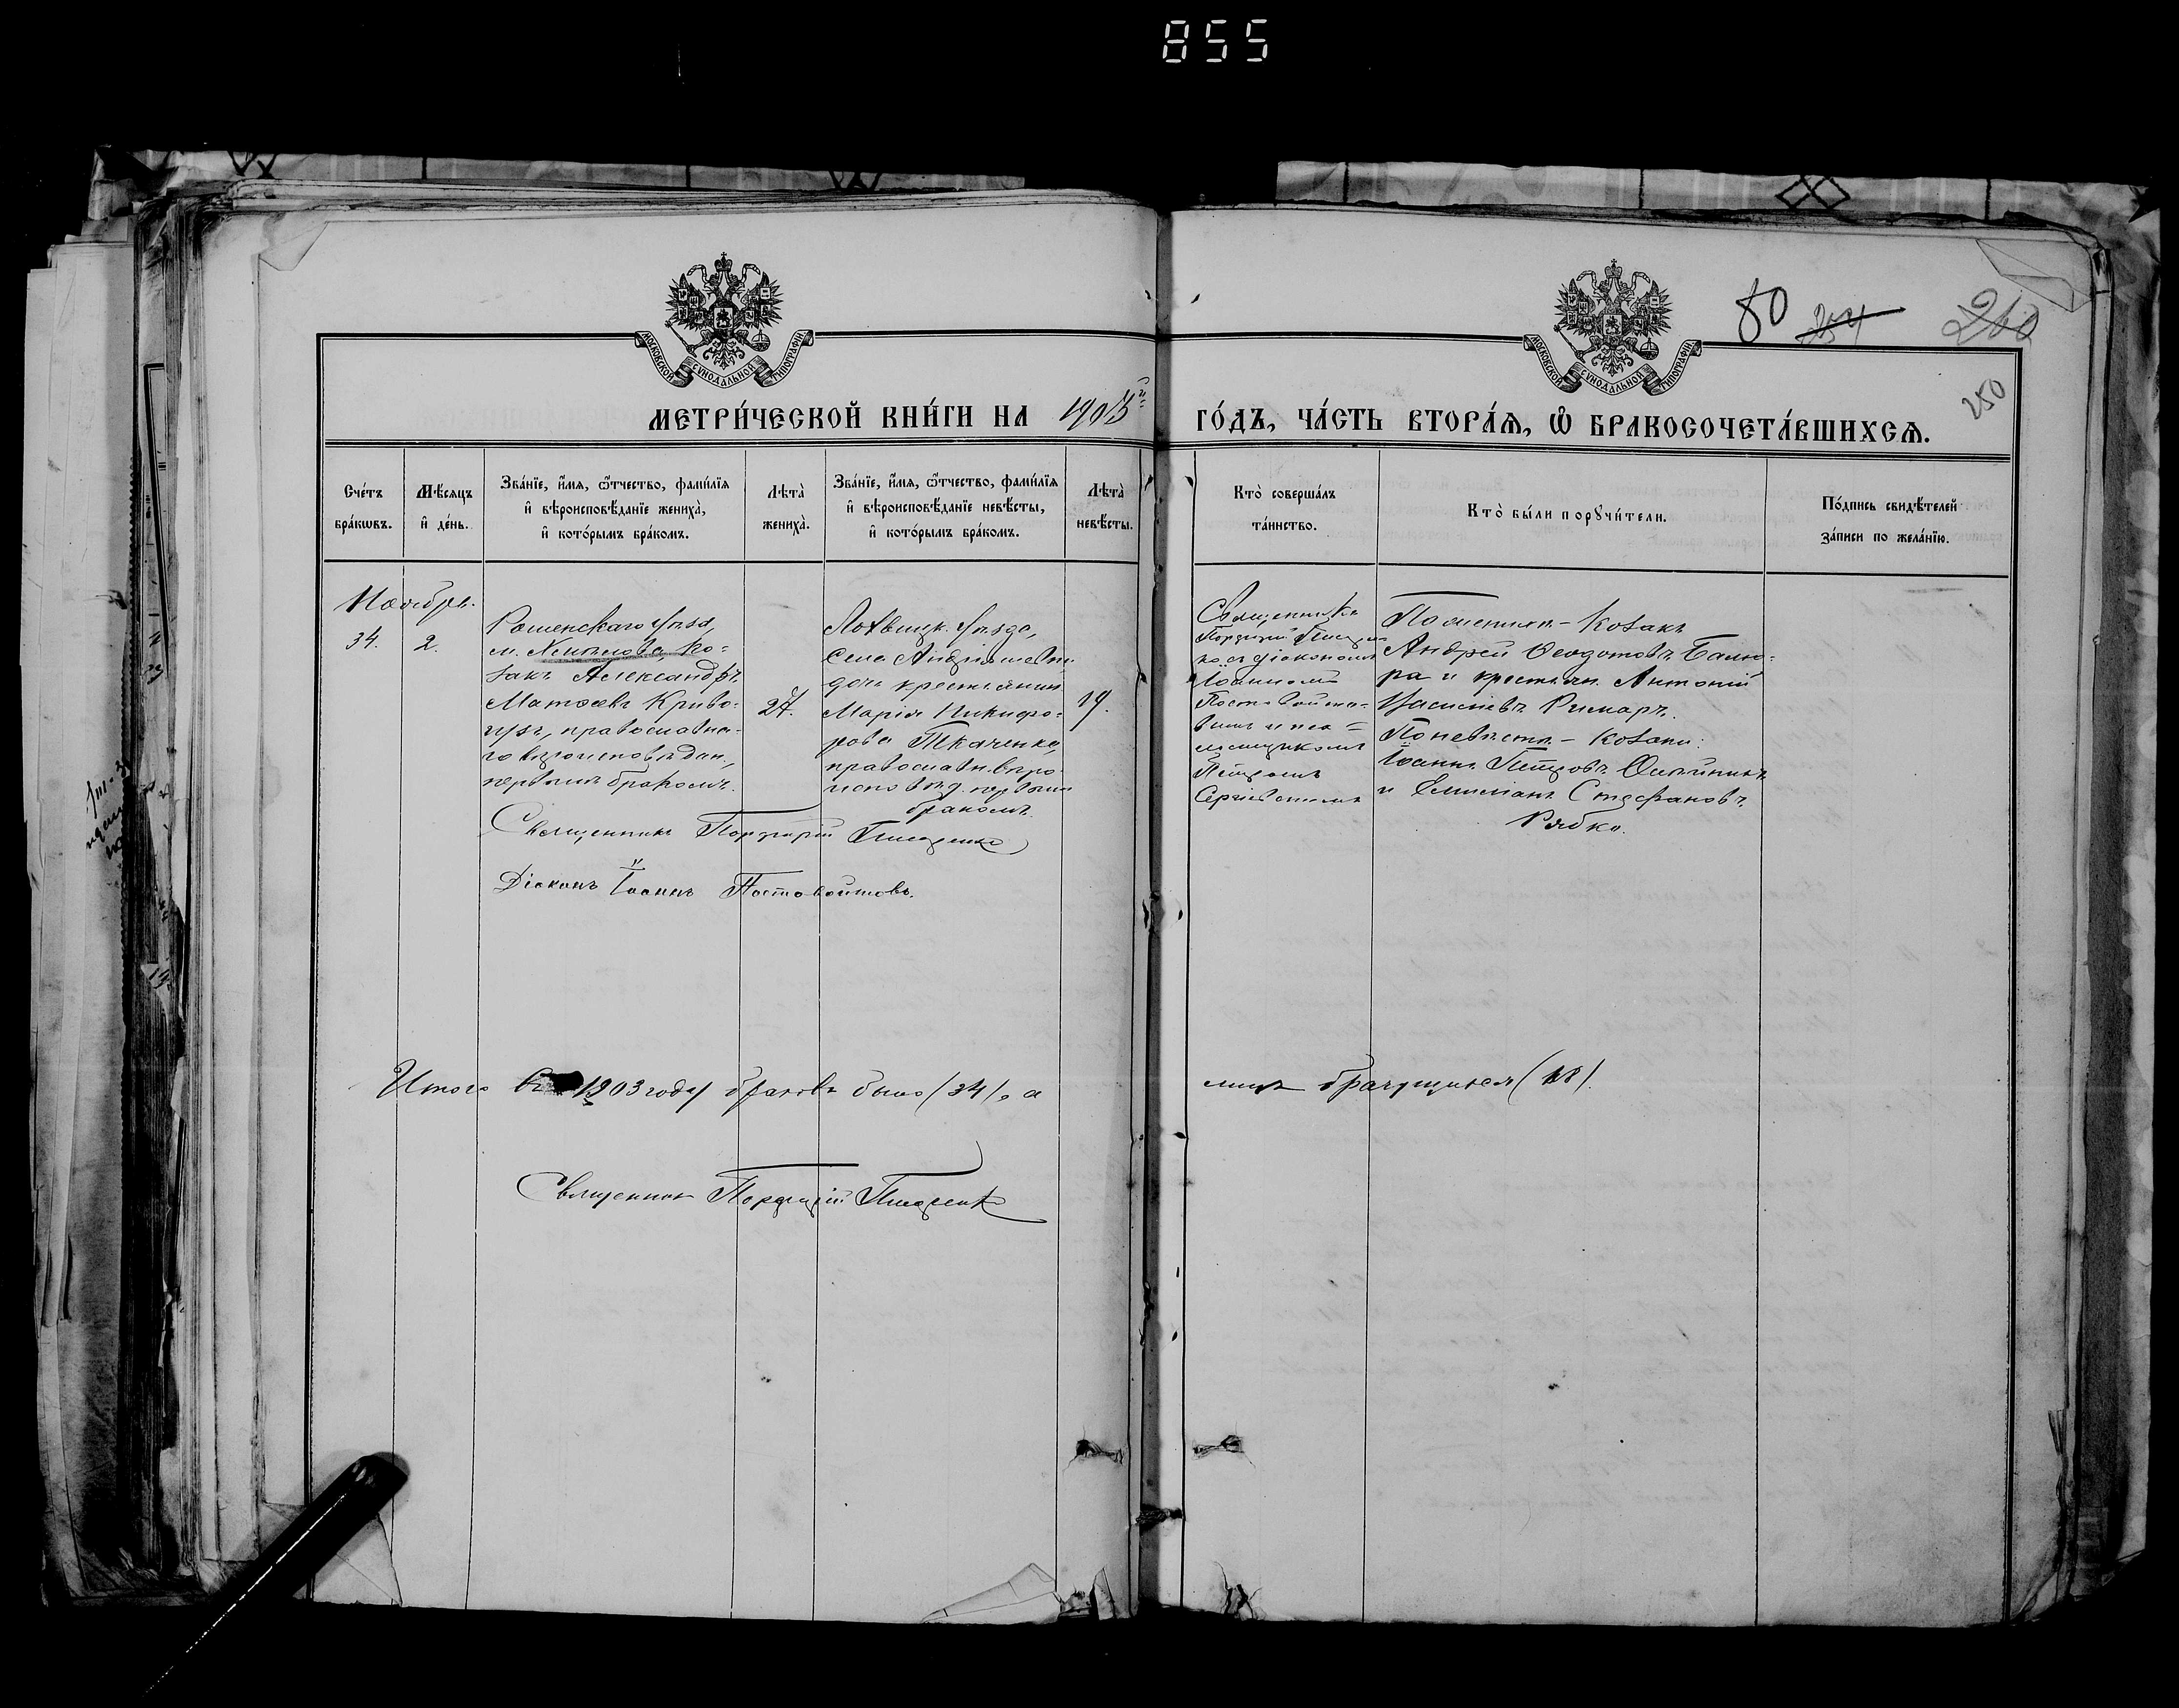 855
80 254 260
250
МОСКОВСКОЙ СѴНОДАЛЬНОЙ ТИПОГРАФІИ
МОСКОВСКОЙ СѴНОДАЛЬНОЙ ТИПОГРАФІИ
МЕТРИ́ЧЕСКОЙ КНИ́ГИ НА 1903й ГО́ДЪ, ЧА́СТЬ ВТОРА́Ѧ, Ѽ БРАКОСОЧЕТА́ВШИХСѦ.
Сче́тъ бра́кѡвъ.
Мѣ́сяцъ и҆ де́нь.
Зва́нїе, и҆́мя, ѻ҆́тчество, фами́лїя
и҆ вѣроисповѣ́данїе жениха̀,
и҆ кото́рымъ бра́комъ.
Лѣта̀ жениха̀.
Зва́нїе, и҆́мя, ѻ҆́тчество, фами́лїя
и҆ вѣроисповѣ́данїе невѣ́сты,
и҆ кото́рымъ бра́комъ.
Лѣта̀ невѣ́сты.
Кто̀ соверша́лъ та́инство.
Кто̀ бы́ли порꙋчи́тели.
По́дпись свидѣ́телей за́писи по жела́нїю.
Ноябрь.
34.
2.
Роменскаго уѣзда,
м. Ко-
закъ Александръ
Матѳеевъ Криво-
гузъ, православна-
го вѣроисповѣдан.,
первымъ бракомъ.
27.
Лохвицк. уѣзда,
села Андріяшевки
дочь крестьянин.
Марія Никифо-
рова Ткаченко,
православн. вѣро-
исповѣд. первымъ
бракомъ.
19.
Священникъ
Порфирій
съ діакономъ
Іоанномъ
Постовойто-
вымъ и пса-
ломщикомъ
Петромъ
Сергіевскимъ
По женихѣ – козакъ
Андрей Ѳеодотовъ
ра и крестьян. Антоній
Васильевъ Римарь.
По невѣстѣ – козаки:
Іоаннъ Петровъ
и Стефановъ
Рябко.
Священникъ Порфирій
Діаконъ Іоаннъ Постовойтовъ.
Итого въ 1903 году браковъ было (34), а
лицъ брачущихся (68).
Священникъ Порфирій